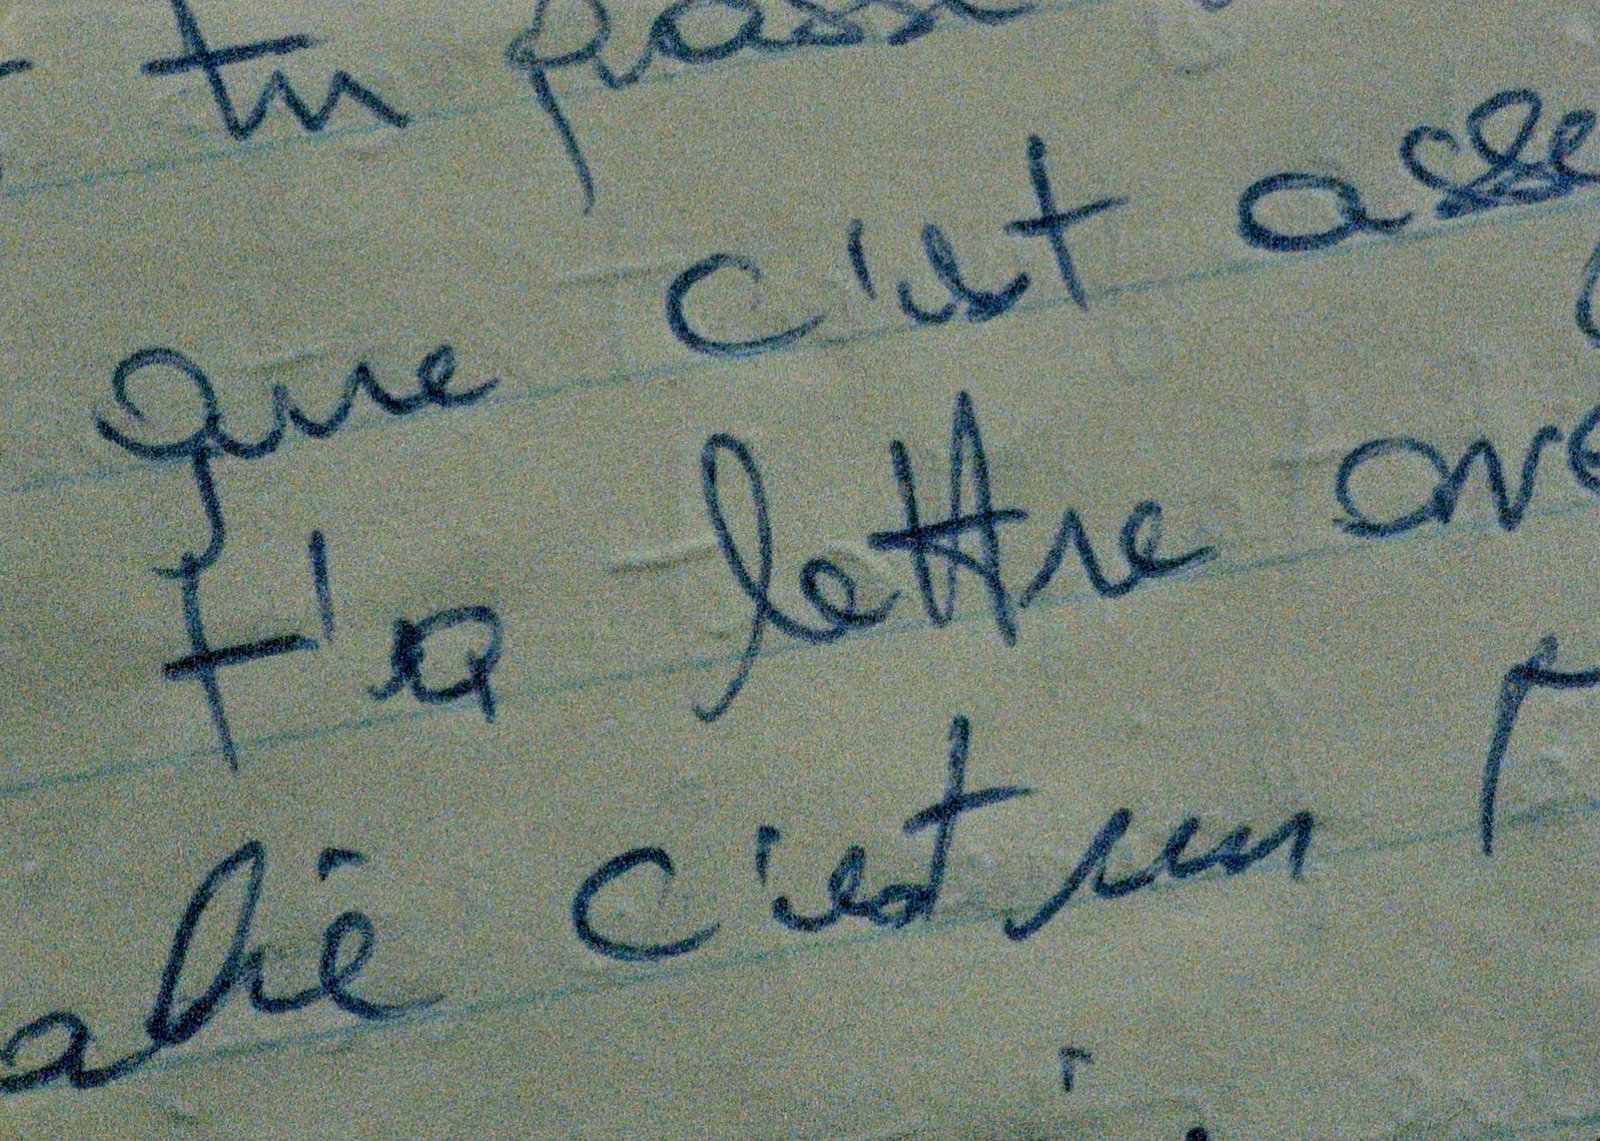 tu passe
que c'est asse
t'a lettre ave
c'est un